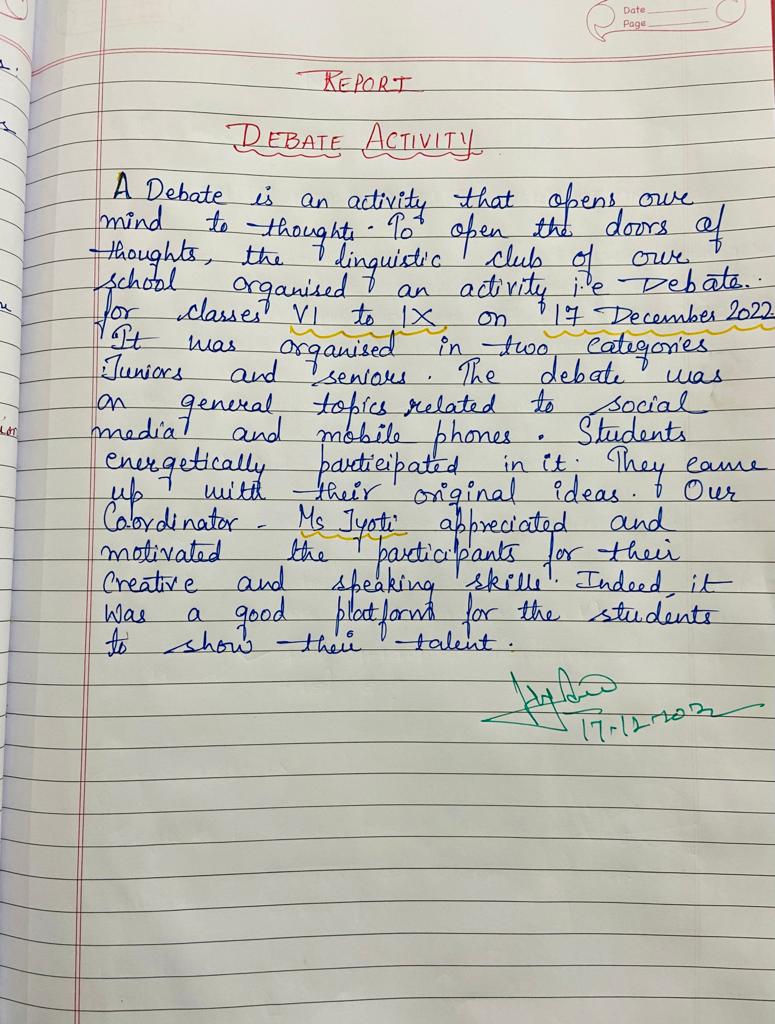 Date
Page
REPORT
DEBATE ACTIVITY
A Debate is an activity that opens our
mind to thoughts. To open the doors of
thoughts, the linguistic club of our
school organised an activity i.e Debate..
for classes VI to IX on 17 December 2022
It was organised in two categories
Juniors and seniors. The debate was
on general topics related to social
media and mobile phones. Students
energetically participated in it. They came
up with their original ideas. Our
Coordinator - Ms Jyoti appreciated and
motivated the participants for their
Creative and speaking skills. Indeed, it
was a good platform for the students
to show their talent.
17.12.2022